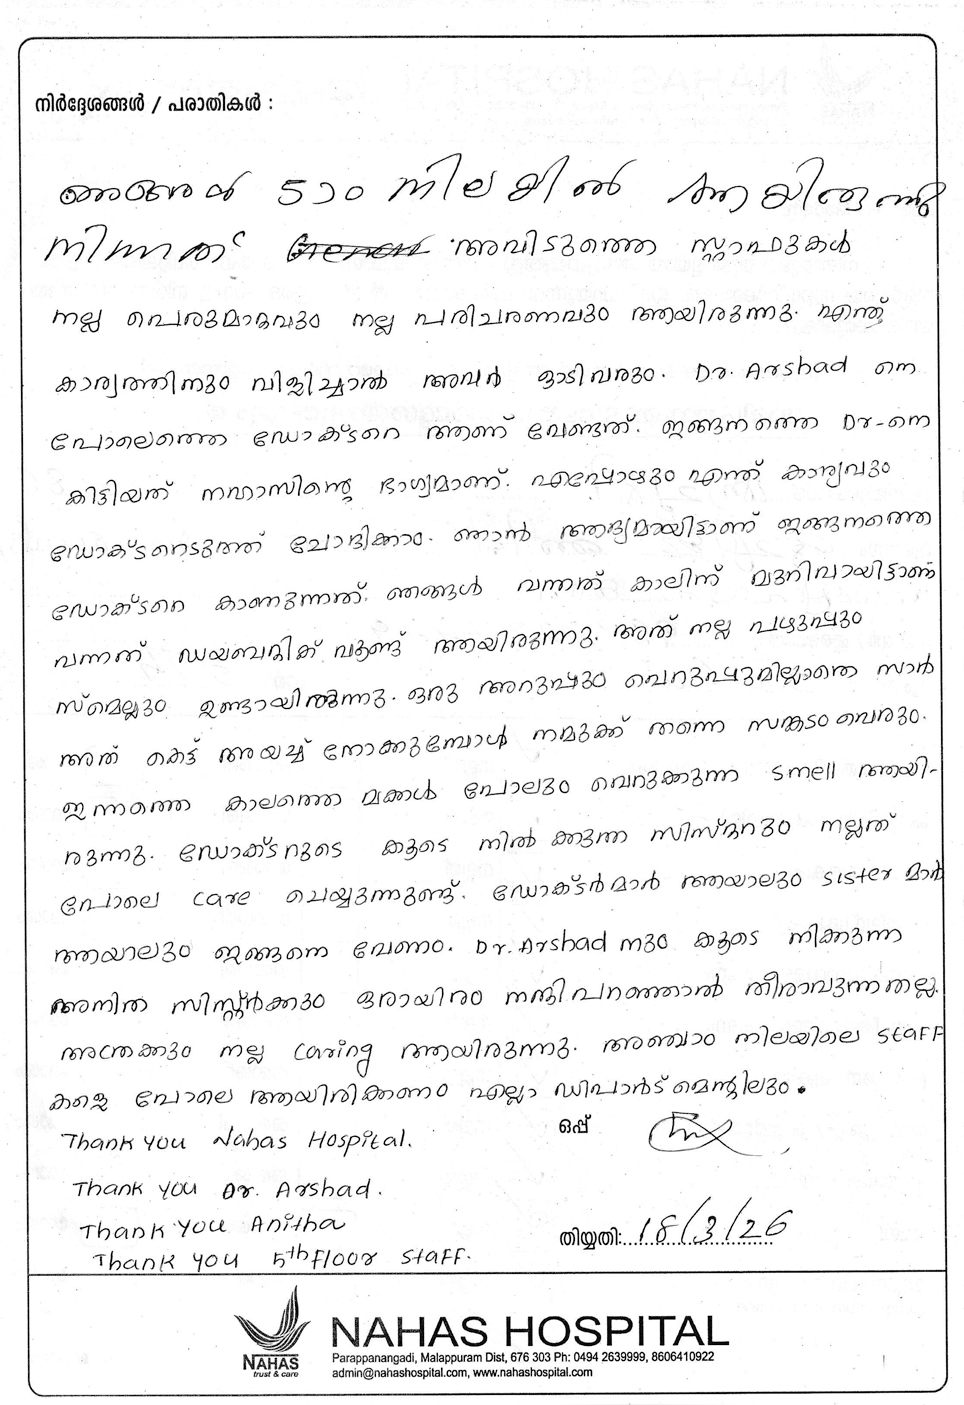 നിർദ്ദേശങ്ങൾ / പരാതികൾ :
ഞങ്ങൾ 5ാം നിലയിൽ ആയിരുന്നു
നിന്നത് അവിടുത്തെ സ്റ്റാഫുകൾ
നല്ല പെരുമാറ്റവും നല്ല പരിചരണവും ആയിരുന്നു. എന്ത്
കാര്യത്തിനും വിളിച്ചാൽ അവർ ഓടിവരും. Dr. Arshad നെ
പോലെത്തെ ഡോക്ടറെ ആണ് വേണ്ടത്. ഇങ്ങനത്തെ Dr-നെ
കിട്ടിയത് നഹാസിന്റെ ഭാഗ്യമാണ്. എപ്പോഴും എന്ത് കാര്യവും
ഡോക്ടറെടുത്ത് ചോദിക്കാം. ഞാൻ ആദ്യമായിട്ടാണ് ഇങ്ങനത്തെ
ഡോക്ടറെ കാണുന്നത്. ഞങ്ങൾ വന്നത് കാലിന് മുറിവായിട്ടാണ്
വന്നത് ഡയബറ്റിക് വൂണ്ട് ആയിരുന്നു. അത് നല്ല പഴുപ്പും
സ്മെല്ലും ഉണ്ടായിരുന്നു. ഒരു അറുപ്പും വെറുപ്പുമില്ലാതെ സാർ
അത് കെട്ട് അയച്ച് നോക്കുമ്പോൾ നമുക്ക് തന്നെ സങ്കടം വെരും.
ഇന്നത്തെ കാലത്തെ മക്കൾ പോലും വെറുക്കുന്ന smell ആയി-
രുന്നു. ഡോക്ടറുടെ കൂടെ നിൽക്കുന്ന സിസ്റ്ററും നല്ലത്
പോലെ care ചെയ്യുന്നുണ്ട്. ഡോക്ടർമാർ ആയാലും sister മാർ
ആയാലും ഇങ്ങനെ വേണം. Dr. Arshad നും കൂടെ നിക്കുന്ന
അനിത സിസ്റ്റർക്കും ഒരായിരം നന്ദി പറഞ്ഞാൽ തീരാവുന്നതല്ല.
അത്രക്കും നല്ല caring ആയിരുന്നു. അഞ്ചാം നിലയിലെ staff
കളെ പോലെ ആയിരിക്കണം എല്ലാ ഡിപാർട്മെന്റിലും.
Thank you Nahas Hospital.
ഒപ്പ്
Thank you Dr. Arshad.
Thank you Anitha
തിയ്യതി: 18/3/26
Thank you 5th floor staff.
NAHAS
trust & care
NAHAS HOSPITAL
Parappanangadi, Malappuram Dist, 676 303 Ph: 0494 2639999, 8606410922
admin@nahashospital.com, www.nahashospital.com